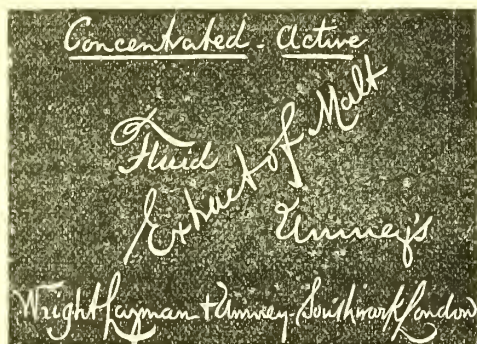 Concentrated - Active
Fluid
Extract of Malt
Umney's
Wright Layman + Umney - Southwark London